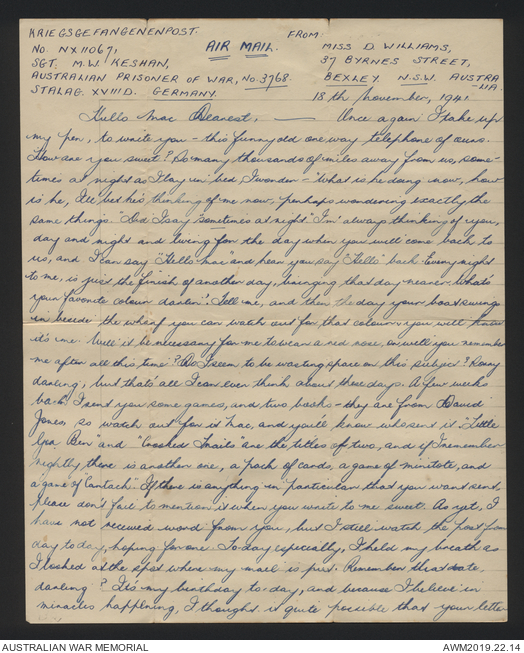 KRIEGSGEFANGENENPOST.
FROM
NO. NX11067,
AIR MAIL.
MISS D. WILLIAMS,
SGT. M.W. KESHAN,
37 BYRNES STREET,
AUSTRALIAN PRISONER OF WAR, NO. 3768.
BEXLEY. N.S.W. AUSTRA
LIA.
STALAG. XVIIID. GERMANY.
18th November, 1941
Hello Mac Dearest, — Once again I take up
my pen, to write you - this funny old one way telephone of ours.
How are you sweet? So many thousands of miles away from us, some-
times at night as I lay in bed I wonder - "What is he doing now, how
is he, I'll bet he's thinking of me now, perhaps wondering exactly the
same things." Did I say sometimes at night "I'm always thinking of you,
day and night and living for the day when you will come back to
us, and I can say "Hello Mac" and hear you say "Hello" back. Every night
to me, is just the finish of another day, bringing that day nearer. What's
your favorite colour darlin'? Tell me, and then the day your boat swings
in beside the wharf you can watch out for that colour & you will know
it's me. Will it be necessary for me to wear a red rose, or will you remember
me after all this time? Do I seem to be wasting space on this subject? Sorry
darling, but that's all I can ever think about these days. A few weeks
back I sent you some games, and two books - they are from David
Jones so watch out for it Mac, and you'll know who sent it. "Little
Ben" and "Crooked are the titles of two, and if I remember
rightly there is another one, a pack of cards, a game of and
a game of If there is anything in particular that you want sent,
please don't fail to mention it when you write to me sweet. As yet, I
have not received word from you, but I still watch the post from
day to day, hoping for one. To-day especially, I held my breath as
I looked at the spot where my mail is put. Remember the date
darling? It's my birthday to-day, and because I believe in
miracles happening, I thought it quite possible that your letter
AUSTRALIAN WAR MEMORIAL
AWM2019.22.14